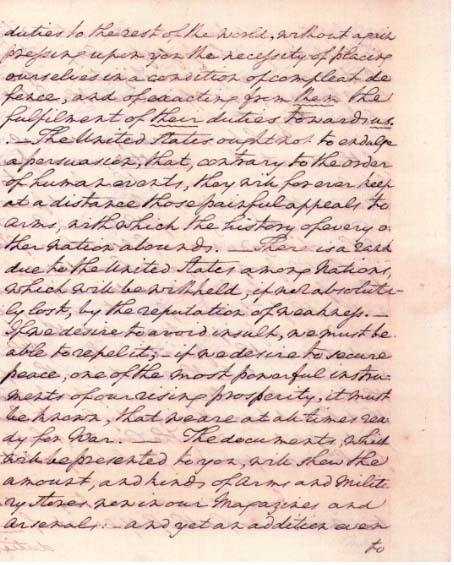 duties to the rest of the world, without again
pressing upon you the necessity of placing
ourselves in a condition of compleat de
fence, and of exacting from them the
fulfilment of their duties towards us.
. — The United States ought not to endulge
a persuasion, that, contrary to the order
of human events, they will for ever keep
at a distance those painful appeals to
arms, with which the history of every o-
ther nation abounds. — There is a rank
due to the United States among Nations,
which will be withheld, if not absolute-
ly lost, by the reputation of weakness. —
If we desire to avoid insult, we must be
able to repel it; — if we desire to secure
peace, one of the most powerful instru-
ments of our rising prosperity, it must
be known, that we are at all times rea-
dy for War. — The documents, which
will be presented to you, will shew the
amount, and kinds of Arms and Milita
ry stores now in our Magazines and
Arsenals: — and yet an addition even
to